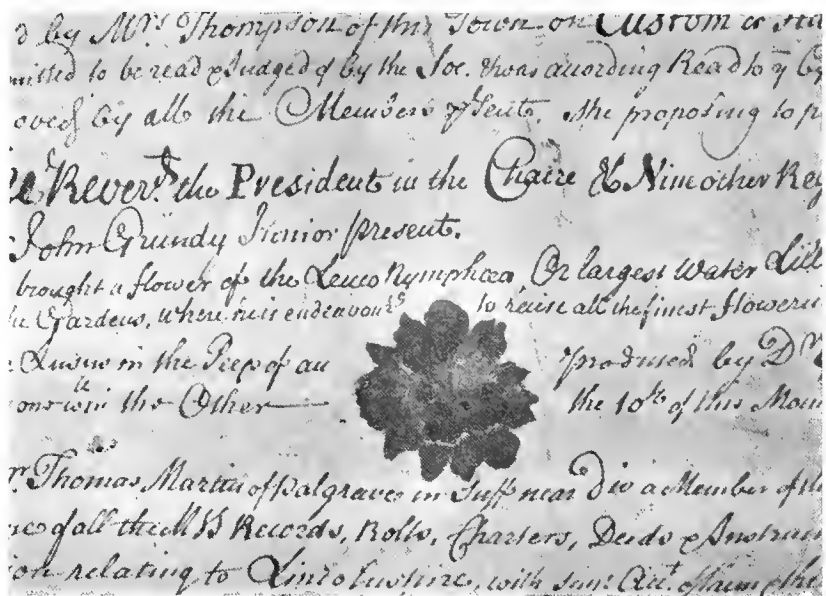 d by Mrs Thompson of this Town on Custom is
mitted to be read & Judged of by the Soc. & was according Read to
oved by all the Members pSent. She proposing to
Reverd. the President in the Chaire & Nine other Reg
John Grundy Junior present.
brought a flower of the Leuco Nymphœa Or largest Water Lill
Gardens, where he is endeavourg to raise all the finest flowern
in the Piep of an produced by Dr
one wch in the Other the 10th of this Mon
Mr. Thomas Martin of Palgrave in Suff near Dis a Member of the
of all the MSS Records, Rolls, Charters, Deeds & Instrum
ion relating to Lincolnshire, with some Acct. of them